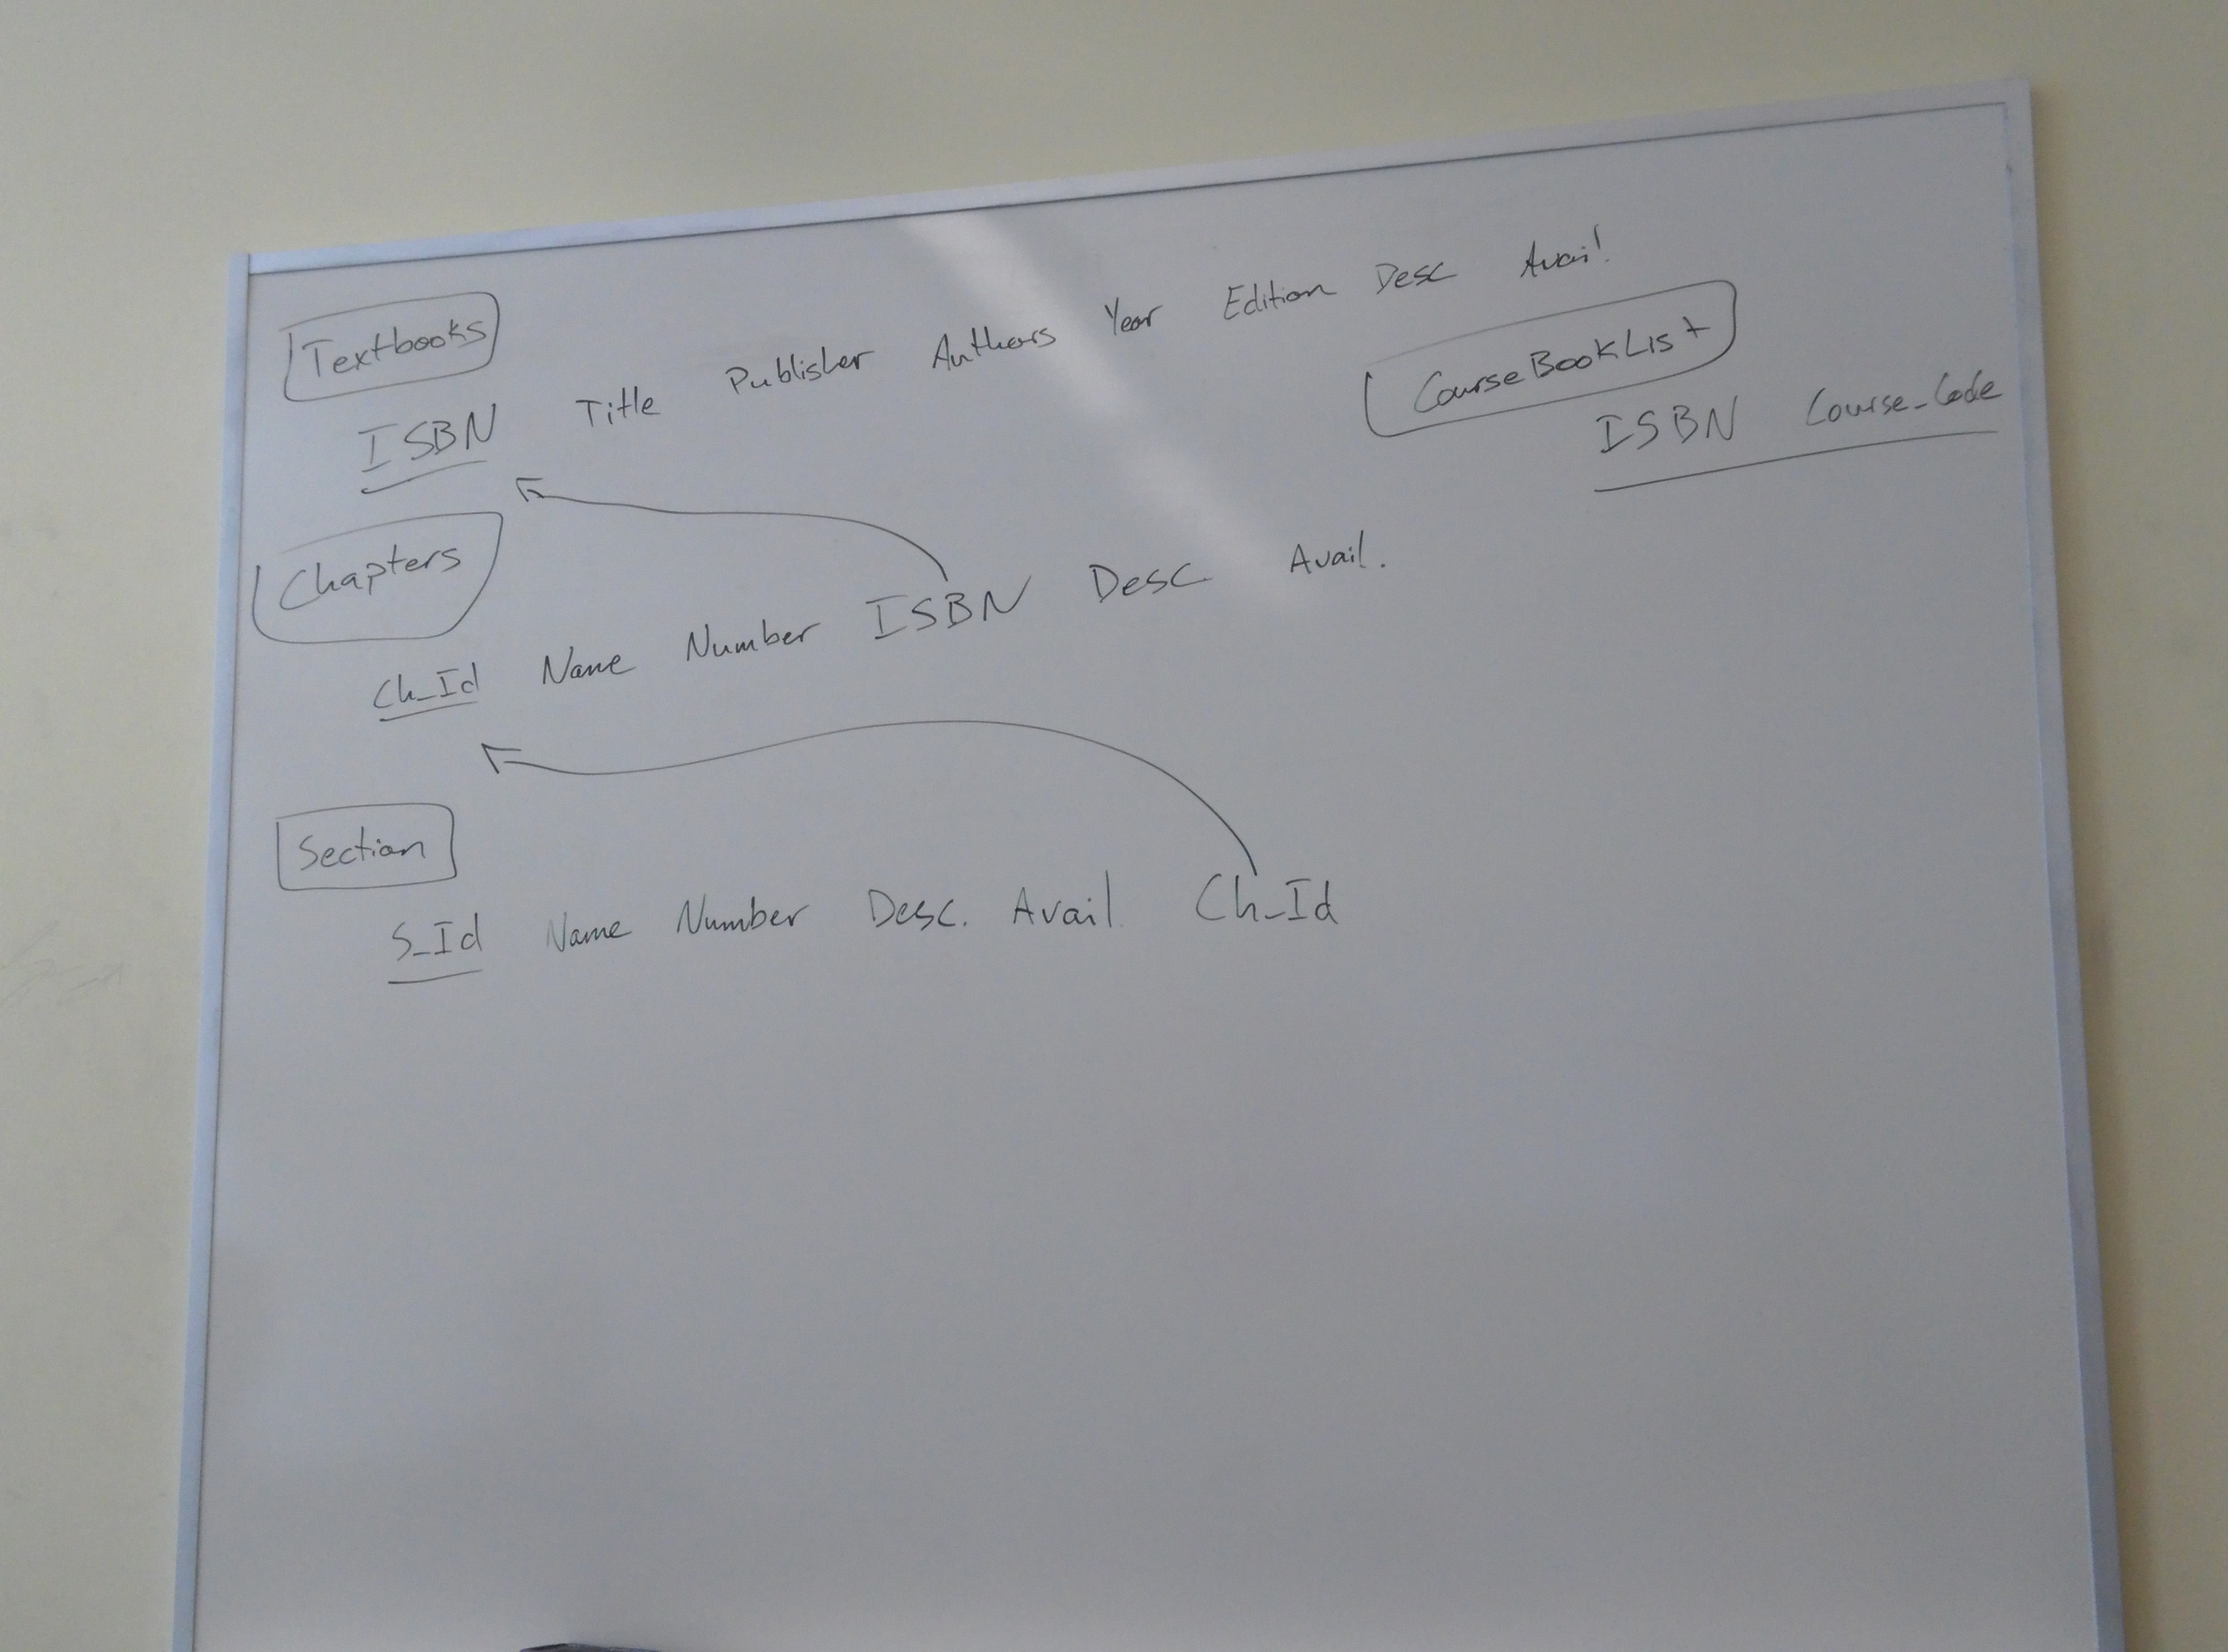 Textbooks
ISBN Title Publisher Authors Year Edition Desc Avail
CourseBookList
ISBN Course_Code
Chapters
Ch_Id Name Number ISBN Desc Avail.
Section
S_Id Name Number Desc. Avail. Ch_Id